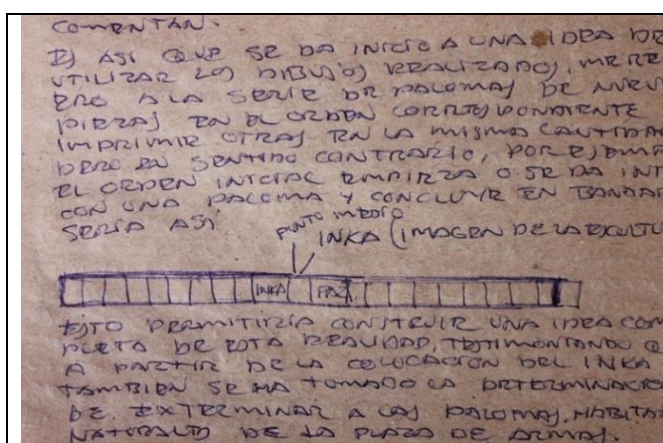 COMENTAN.
ES ASI QUE SE DA INICIO A UNA IDEA DE
UTILIZAR LOS DIBUJOS REALIZADOS, ME RE
ERO A LA SERIE DE PALOMAS DE NUEV
PIEZAS EN EL ORDEN CORRESPONDIENTE
IMPRIMIR OTRAS EN LA MISMA CANTIDA
PERO EN SENTIDO CONTRARIO, POR EJEMP
EL ORDEN INICIAL EMPIEZA O SE DA INI
CON UNA PALOMA Y CONCLUYE EN BANDA
SERIA ASI
PUNTO MEDIO
INKA (IMAGEN DE LA ESCULTU
INKA PAZ
ESTO PERMITIRIA CONSTRUIR UNA IDEA COM
PLETA DE ESTA REALIDAD, TESTIMONIANDO Q
A PARTIR DE LA COLOCACION DEL INKA
TAMBIEN SE HA TOMADO LA DETERMINACIO
DE EXTERMINAR A LAS PALOMAS, HABITA
NATURALES DE LA PLAZA DE ARMAS.